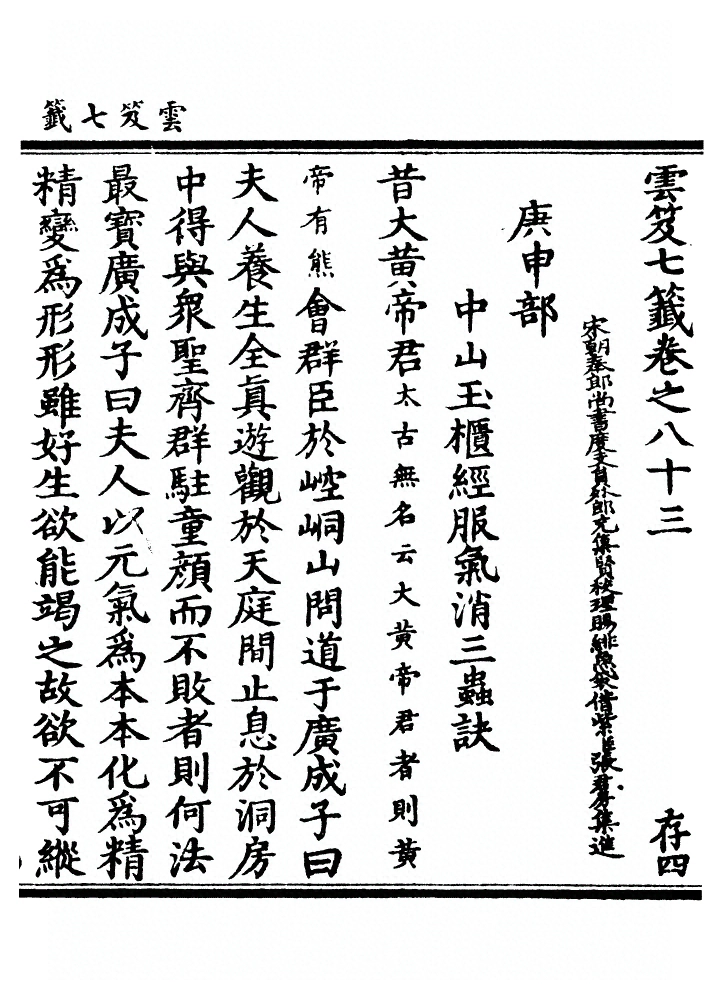 雲笈七籤
雲笈七籤卷之八十三 存四
宋朝奉郎尚書度支員外郎充集賢校理賜緋魚袋借紫臣張君房集進
庚申部
中山玉櫃經服氣消三蟲訣
昔大黄帝君太古無名云大黄帝君者則黄
帝有熊會群臣於崆峒山問道于廣成子曰
夫人養生全真遊觀於天庭間止息於洞房
中得與衆聖齊群駐童顔而不敗者則何法
最寶廣成子曰夫人以元氣爲本本化爲精
精變爲形形雖好生欲能竭之故欲不可縱